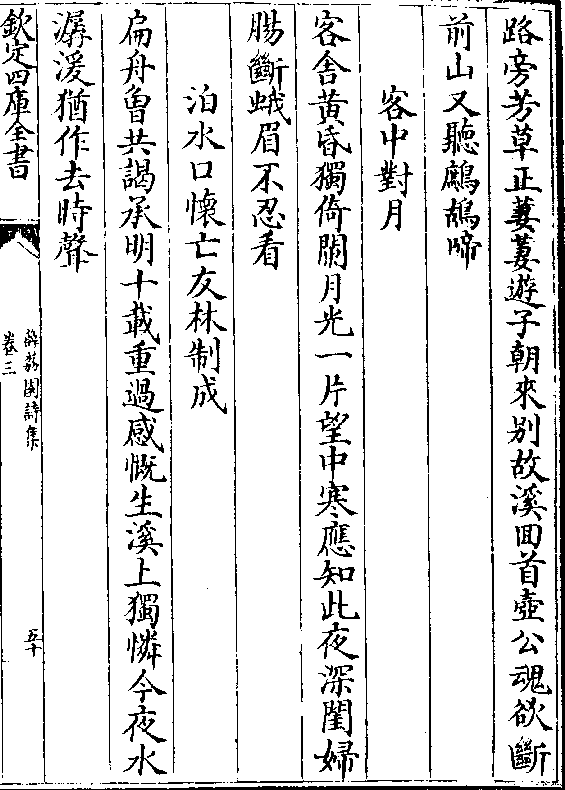 路旁芳草正萋萋遊子朝來别故溪囬首壺公魂欲斷
前山又聽鷓鴣啼
客中對月
客舍黄昏獨倚闌月光一片望中寒應知此夜深閨婦
腸斷蛾眉不忍看
泊水口懷亡友林制成
扁舟曾共謁承明十載重過感慨生溪上獨憐今夜水
潺湲猶作去時聲
欽定四庫全書
薜荔園詩集
卷三
五十